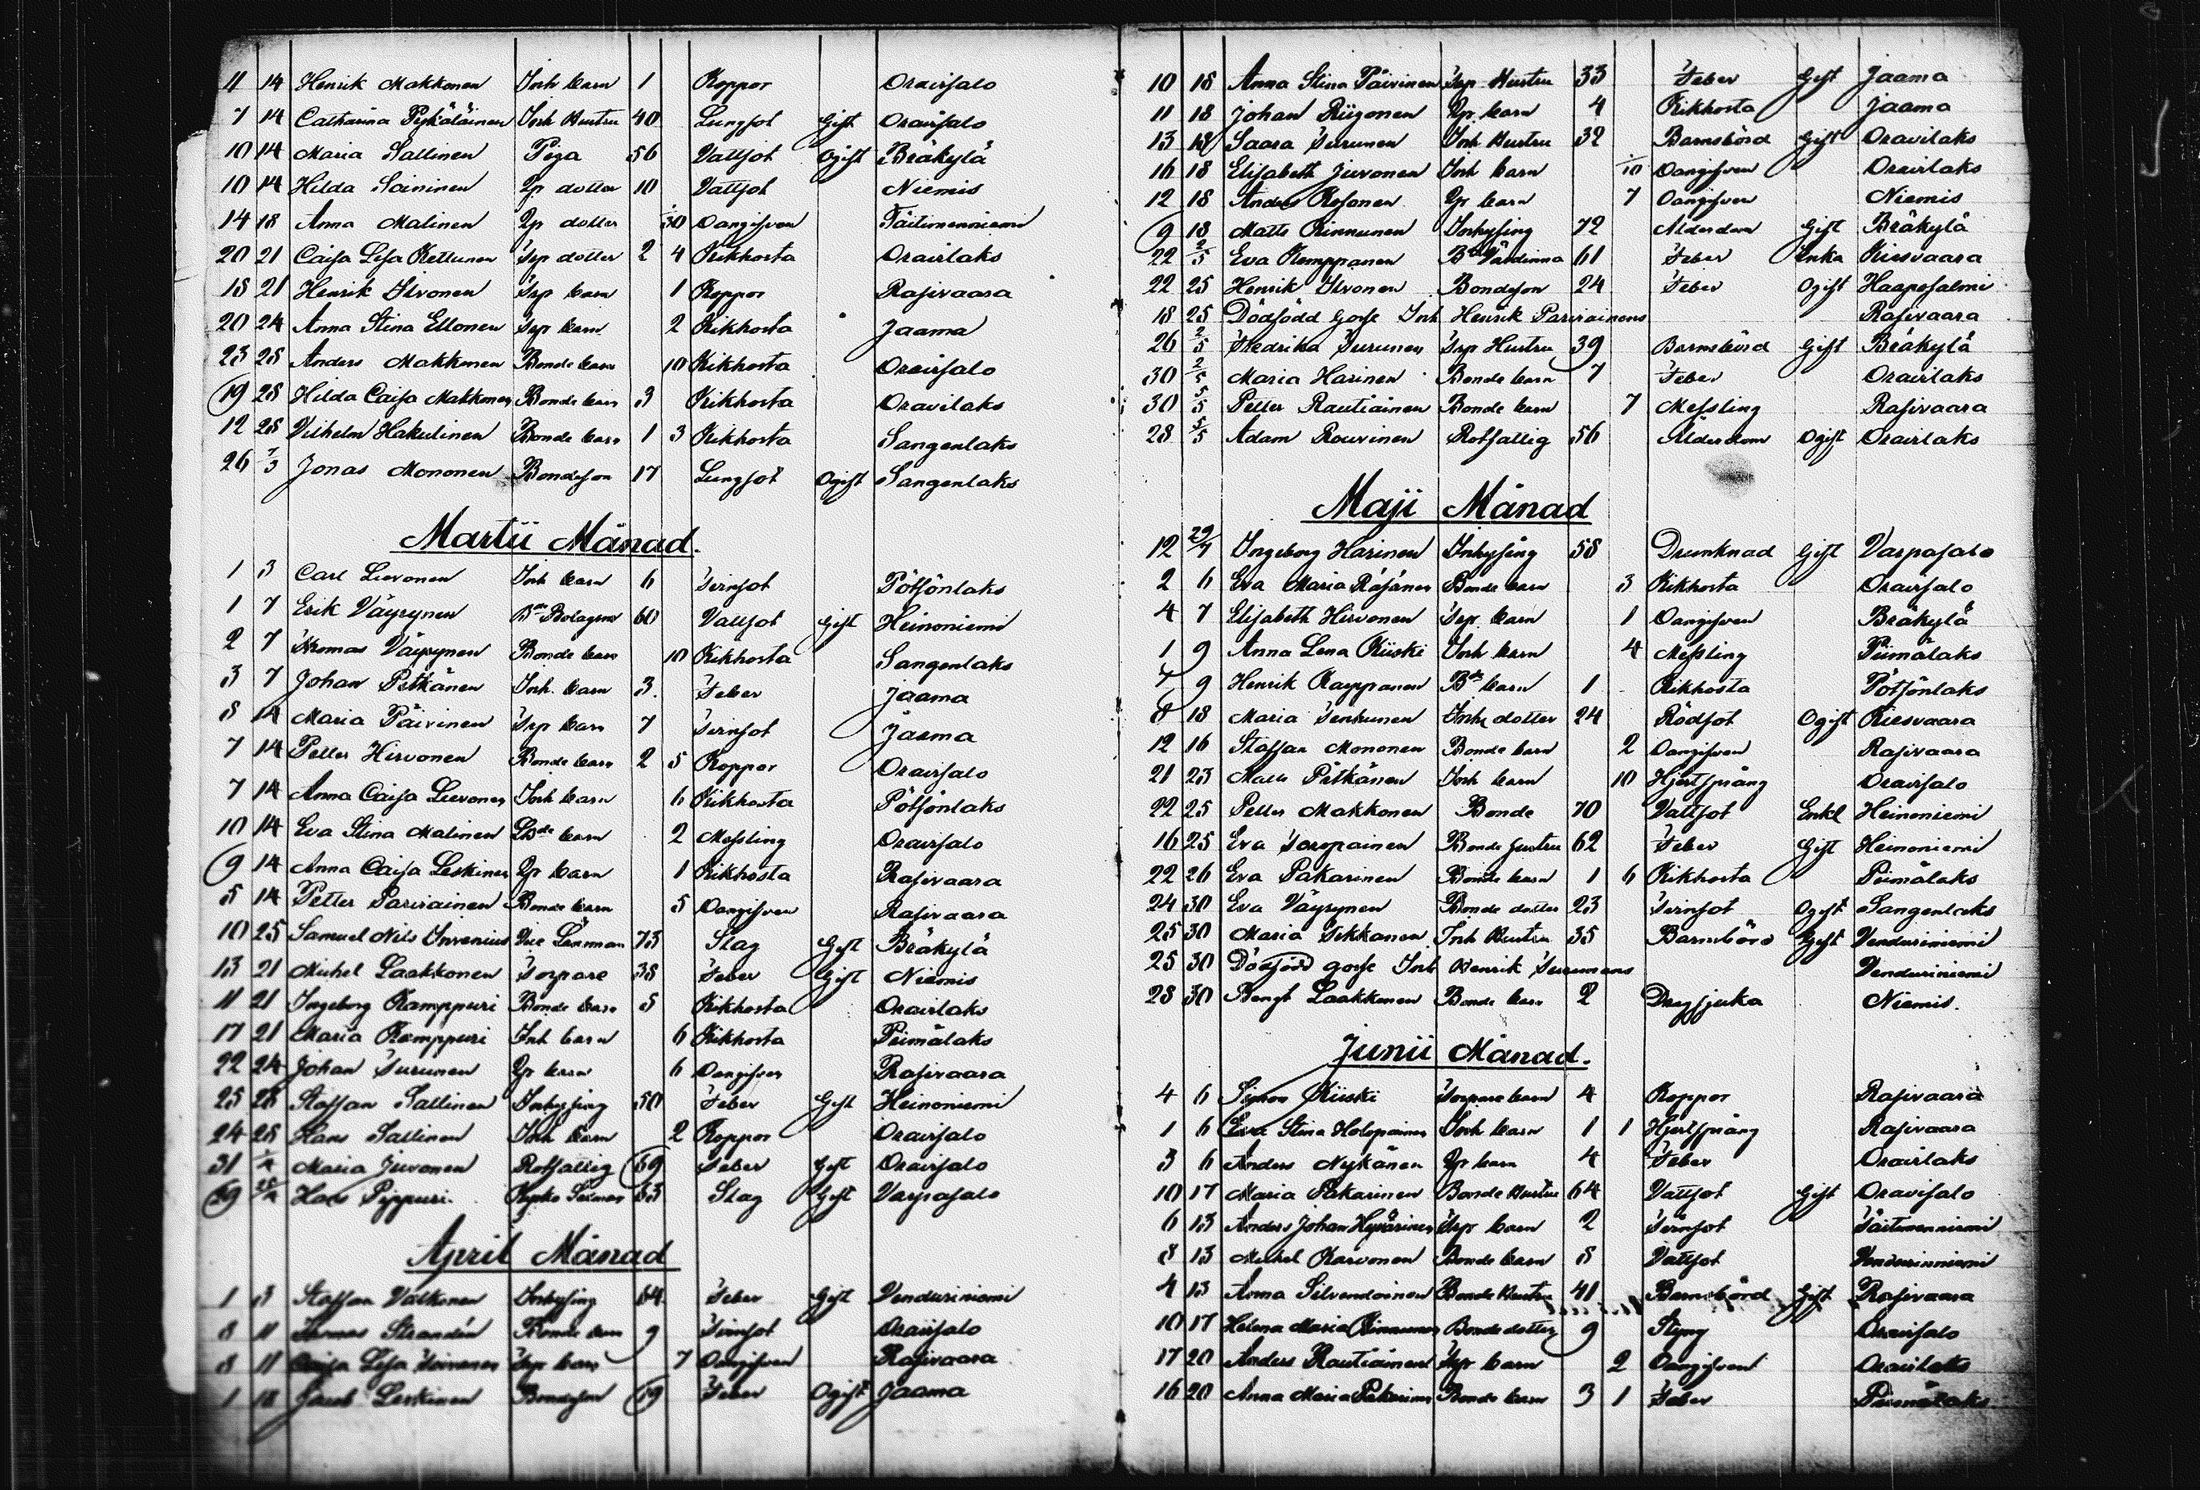 11 14 Henrik Makkonen Inh barn 1 Koppor Oravisalo
7 14 Catharina Pykäläinen Inh Hustru 40 Lungsot Gift Oravisalo
10 14 Maria Sallinen Piga 56 Vattsot Ogift Bräkylä
10 14 Hilda Soininen Lp dotter 10 Vattsot Niemis
14 18 Anna Malinen Lp dotter 1/30 Oangifven Täitimenniemi
20 21 Caisa Lisa Kettunen Trp dotter 2 4 Kikhosta Oravilaks
18 21 Henrik Ilvonen Trp barn 1 Koppor Rasivaara
20 24 Anna Stina Ellonen Trp barn 2 Kikhosta Jaama
23 28 Anders Makkonen Bonde barn 10 Kikhosta Oravisalo
19 28 Hilda Caisa Makkonen Bonde barn 3 Kikhosta Oravilaks
12 28 Vilhelm Hakulinen Bonde barn 1 3 Kikhosta Sangenlaks
26 1/3 Jonas Mononen Bondeson 17 Lungsot Ogift Sangenlaks
Martii Månad.
1 3 Carl Lievonen Inh barn 6 Tvinsot Pötsönlaks
1 7 Erik Väyrynen Bde Bolagsm 60 Vattsot Gift Heinoniemi
2 7 Thomas Väyrynen Bonde barn 10 Kikhosta Sangenlaks
3 7 Johan Pitkänen Inh. barn 3. Feber Jaama
8 14 Maria Päivinen Trp barn 7 Tvinsot Jaama
7 14 Petter Hirvonen Bonde barn 2 5 Koppor Oravisalo
7 14 Anna Caisa Lievonen Inh barn 6 Kikhosta Pötsönlaks
10 14 Eva Stina Malinen barn 2 Messling Oravisalo
9 14 Anna Caisa Leskinen Lp barn 1 Kikhosta Rasivaara
5 14 Petter Parviainen Bonde barn 5 Oangifven Rasivaara
10 25 Samuel Nils Invenius Vice Länman 73 Slag Gift Bräkylä
13 21 Michel Laakkonen Torpare 38 Feber Gift Niemis
11 21 Ingeborg Kamppuri Bonde barn 5 Kikhosta Oravilaks
17 21 Maria Kamppuri Inh barn 6 Kikhosta Piimälaks
22 24 Johan Turunen Lp barn 6 Oangifven Rasivaara
25 28 Staffan Sallinen Inhysing 50 Feber Gift Heinoniemi
24 28 Hans Sallinen Inh barn 2 Koppor Oravisalo
31 1/4 Maria Juvonen Rotfattig 69 Feber Gift Oravisalo
Hans Pippuri. 63 Slag Gift Varpasalo
April Månad
1 3 Staffan Valkonen Inhysing 64 Feber Gift Venduriniemi
8 11 Thomas Strandén Bonde barn 9 Tvinsot Oravisalo
8 11 Caisa Lisa Toivanen Trp barn 7 Oangifven Rasivaara
1 18 Jacob Leskinen Bondeson 19 Feber Ogift Jaama
10 18 Anna Stina Päivinen Trp Hustru 33 Feber Gift Jaama
11 18 Johan Riigonen Lp. barn 4 Kikhosta Jaama
13 18 Saara Turunen Inh Hustru 32 Barnsbörd Gift Oravilaks
16 18 Elisabeth Juvonen Inh barn 1/10 Oangifven Oravilaks
12 18 Anders Kosonen Lp barn 7 Oangifven Niemis
9 18 Matts Kinnunen Inhysing 72 Ålderdom Gift Bräkylä
22 2/5 Eva Kamppanen Bde Värdinna 61 Feber Enka Kiesvaara
22 25 Henrik Ilvonen Bondeson 24 Feber Ogift Haapasalmi
18 25 Dödfödd Gosse Inh Henrik Parviainens Rasivaara
26 2/5 Fredrika Turunen Trp Hustru 39 Barnsbörd Gift Bräkylä
30 2/5 Maria Harinen Bonde barn 7 Feber Oravilaks
30 5/5 Petter Rautiainen Bonde barn 7 Messling Rasivaara
28 5/5 Adam Rouvinen Rotfattig 56 Ålderdom Ogift Oravilaks
Maji Månad
12 29/4 Ingeborg Harinen Inhysing 58 Drunknad Gift Varpasalo
2 6 Eva Maria Räsänen Bonde barn 3 Kikhosta Oravisalo
4 7 Elisabeth Hirvonen Trp. barn 1 Oangifven Bräkylä
1 9 Anna Lena Kiiski Inh barn 4 Messling Piimälaks
7 9 Henrik Karppanen Bde barn 1 Kikhosta Pötsönlaks
8 18 Maria Tenhunen Inh dotter 24 Rödsot Ogift Kiesvaara
12 16 Staffan Mononen Bonde barn 2 Oangifven Rasivaara
21 23 Matts Pitkänen Inh barn 10 Hjertsprång Oravisalo
22 25 Petter Makkonen Bonde 70 Vattsot Enkl Heinoniemi
16 25 Eva Toropainen Bonde Hustru 62 Feber Gift Heinoniemi
22 26 Eva Pakarinen Bonde barn 1 6 Kikhosta Piimälaks
24 30 Eva Väyrynen Bonde dotter 23 Tvinsot Ogift Sangenlaks
25 30 Maria Tikkanen Inh Hustru 35 Barnsbörd Gift Venduriniemi
25 30 Dödfödd gosse Inh Henrik Turunens Venduriniemi
28 30 Bengt Laakkonen Bonde barn 2 Dragsjuka Niemis.
Junii Månad.
4 6 Simon Kiiski Torpare barn 4 Koppor Rasivaara
1 6 Eva Stina Holopainen Inh barn 1 1 Hjertsprång Rasivaara
3 6 Anders Nykänen Lp barn 4 Feber Oravilaks
10 17 Maria Pakarinen Bonde Hustru 64 Vattsot Gift Oravisalo
6 13 Anders Johan Hyvärinen Trp barn 2 Tvinsot Täitimenniemi
8 13 Michel Karvonen Bonde barn 8 Vattsot Venduriniemi
4 13 Anna Silvendoinen Bonde Hustru 41 Barnsbörd Gift Rasivaara
10 17 Helena Maria Kinnunen Bonde dotter 9 Styng Oravisalo
17 20 Anders Rautiainen Trp barn 2 Oangifvent Oravilaks
16 20 Anna Maria Pakarinen Bonde barn 3 1 Feber Piimälaks